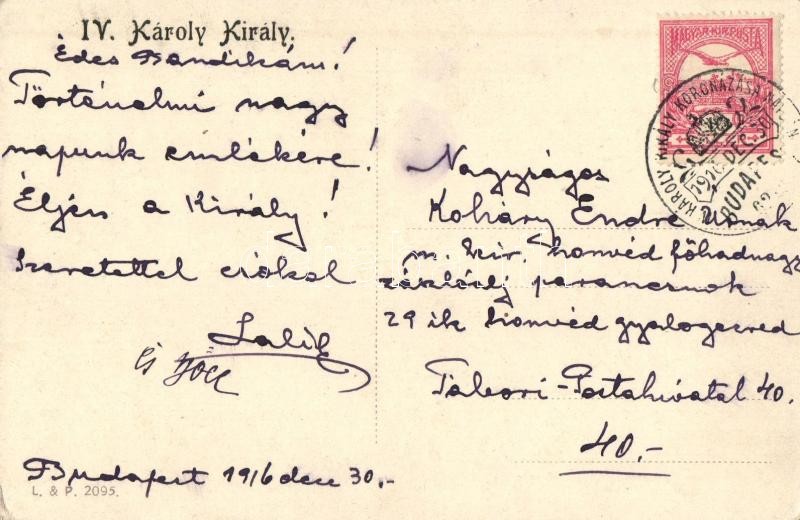 IV. Károly Király.
Édes Bandikám!
Történelmi nagy
napunk emlékére!
Éljen a Király!
Szeretettel csókol
Lali
és
Budapest 1916 dec 30.-
L. & P. 2095.
MAGYAR KIR. POSTA
KÁROLY KIRÁLY KORONÁZÁSA NAPJÁN
1916 DEC. 30
BUDAPEST
Nagyságos
Koháry Endre Urnak
m. kir. honvéd főhadnagy
zászlóalj parancsnok
29 ik honvéd gyalogezred
Tábori-Postahivatal 40.
40.-